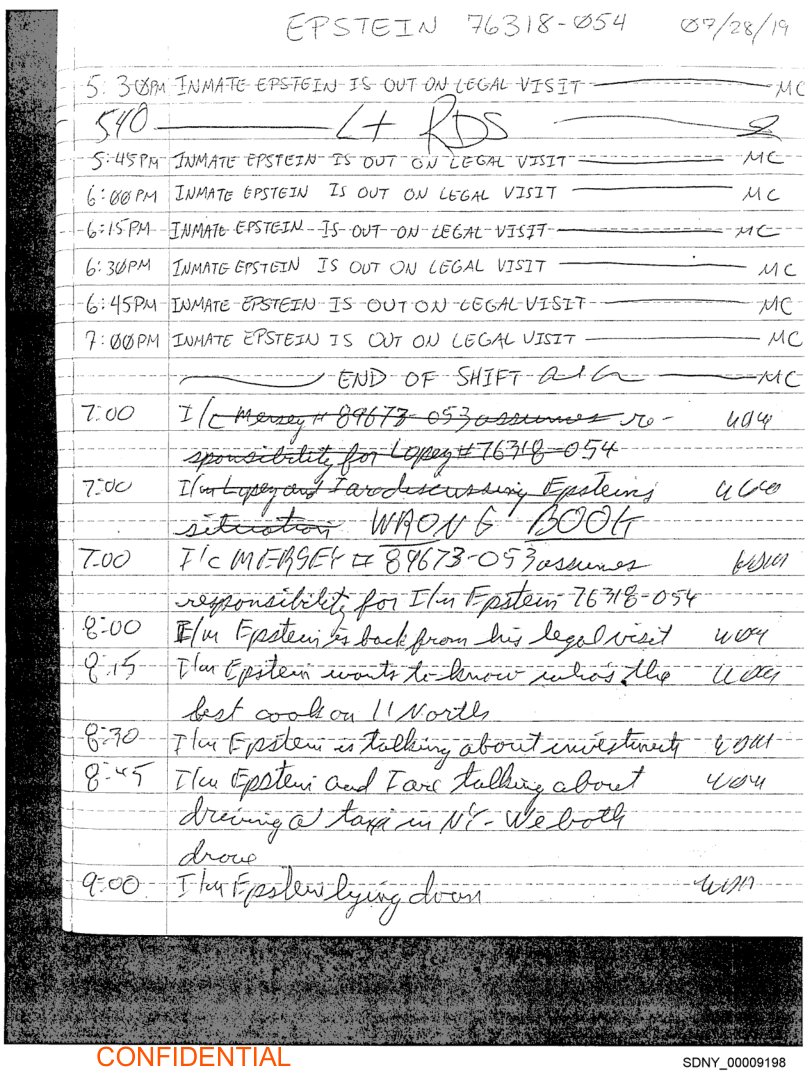 EPSTEIN 76318-054 07/28/19
5:30PM INMATE EPSTEIN IS OUT ON LEGAL VISIT MC
540 Lt RDS
5:45PM INMATE EPSTEIN IS OUT ON LEGAL VISIT MC
6:00PM INMATE EPSTEIN IS OUT ON LEGAL VISIT MC
6:15PM INMATE EPSTEIN IS OUT ON LEGAL VISIT MC
6:30PM INMATE EPSTEIN IS OUT ON LEGAL VISIT MC
6:45PM INMATE EPSTEIN IS OUT ON LEGAL VISIT MC
7:00PM INMATE EPSTEIN IS OUT ON LEGAL VISIT MC
END OF SHIFT MC
7:00 I/c Mersey # 89673-053 assumes re-
sponsibility for Lopez # 76318-054
7:00 I/m Lopez and I are discussing Epsteins
situation WRONG BOOK
7:00 I/c MERSEY # 89673-053 assumes
responsibility for I/m Epstein 76318-054
8:00 I/m Epstein is back from his legal visit
8:15 I/m Epstein wants to know who's the
best cook on 11 North
8:30 I/m Epstein is talking about investments
8:45 I/m Epstein and I are talking about
driving a taxi in NY - We both
drove
9:00 I/m Epstein lying down
CONFIDENTIAL
SDNY_00009198